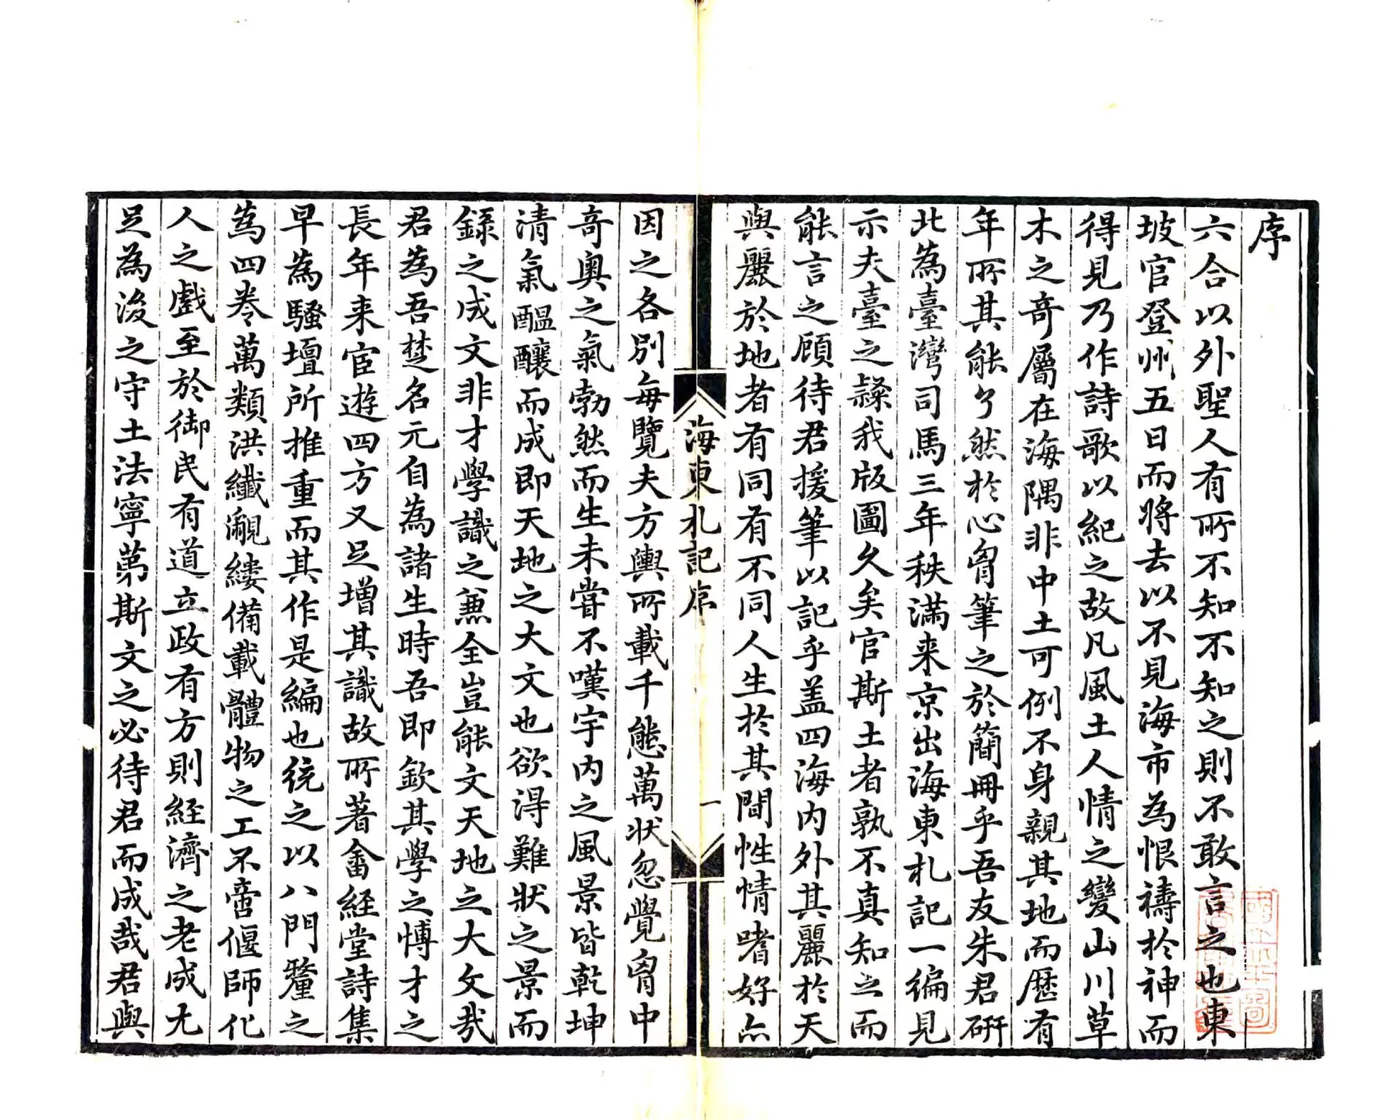 序
六合以外聖人有所不知不知之則不敢言之也東
坡官登州五日而將去以不見海市為恨禱於神而
得見乃作詩歌以紀之故凡風土人情之變山川草
木之奇屬在海隅非中土可例不身親其地而歷有
年所其能了然於心胷筆之於簡冊乎吾友朱君研
北為臺灣司馬三年秩滿来京出海東札記一編見
示夫臺之隸我版圖久矣官斯土者孰不真知之而
能言之顧待君援筆以記乎盖四海内外其麗於天
與麗於地者有同有不同人生於其間性情嗜好亦
海東札記序
一
因之各别每覽夫方輿所載千態萬状忽覺胷中
奇奥之氣勃然而生未嘗不嘆宇内之風景皆乾坤
清氣醖釀而成即天地之大文也欲得難狀之景而
錄之成文非才學識之蒹全豈能文天地之大文哉
君為吾楚名元自為諸生時吾即欽其學之博才之
長年来宦遊四方又足增其識故所著畬經堂詩集
早為騷壇所推重而其作是編也統之以八門釐之
為四卷萬類洪纖覼縷備載體物之工不啻偃師化
人之戲至於御民有道立政有方則経濟之老成尤
足為後之守土法寧第斯文之必待君而成哉君與